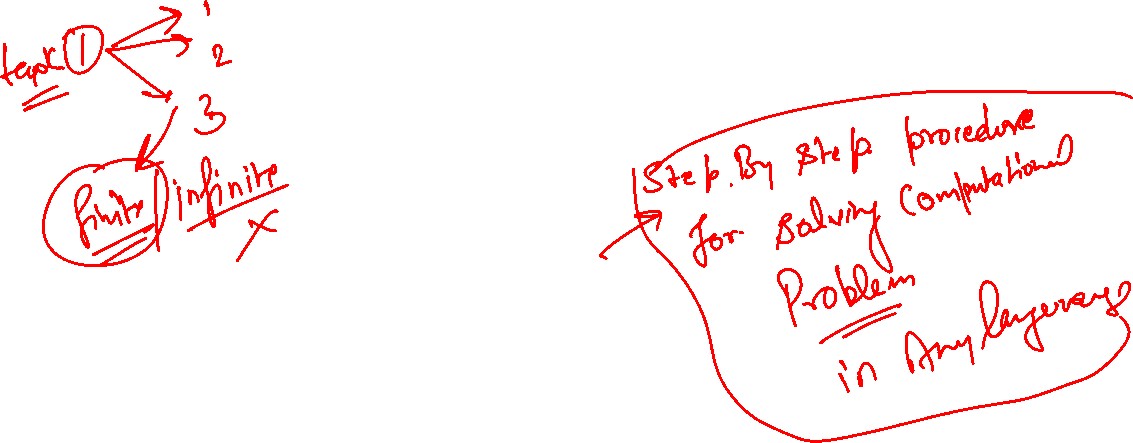 task 1
1
2
3
finite | infinite
x
Step. By step procedure
for solving computational
Problem
in Any language